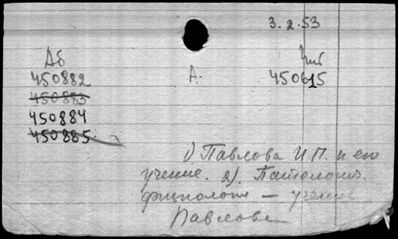 3.2.53
Дб
450882 А. 450615
450883
450884
450885.
1). Павлова И.П. и его
учение. 2). Патологич.
физиология — учение
Павлова